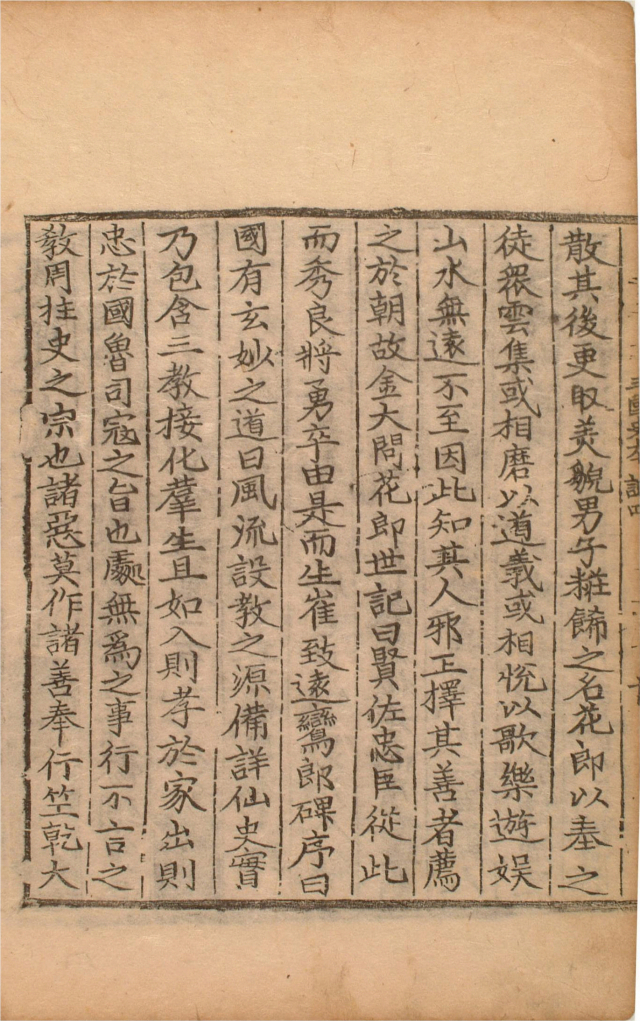 散其後更取美貌男子粧飾之名花郎以奉之
徒衆雲集或相磨以道義或相恱以歌樂遊娱
山水無遠不至因此知其人邪正擇其善者薦
之於朝故金大問花郎世記曰賢佐忠臣從此
而秀良將勇卒由是而生崔致遠鸞郎碑序曰
國有玄妙之道曰風流設教之源備詳仙史實
乃包含三教接化羣生且如入則孝於家出則
忠於國魯司寇之旨也處無爲之事行不言之
教周柱史之宗也諸惡莫作諸善奉行竺乾大